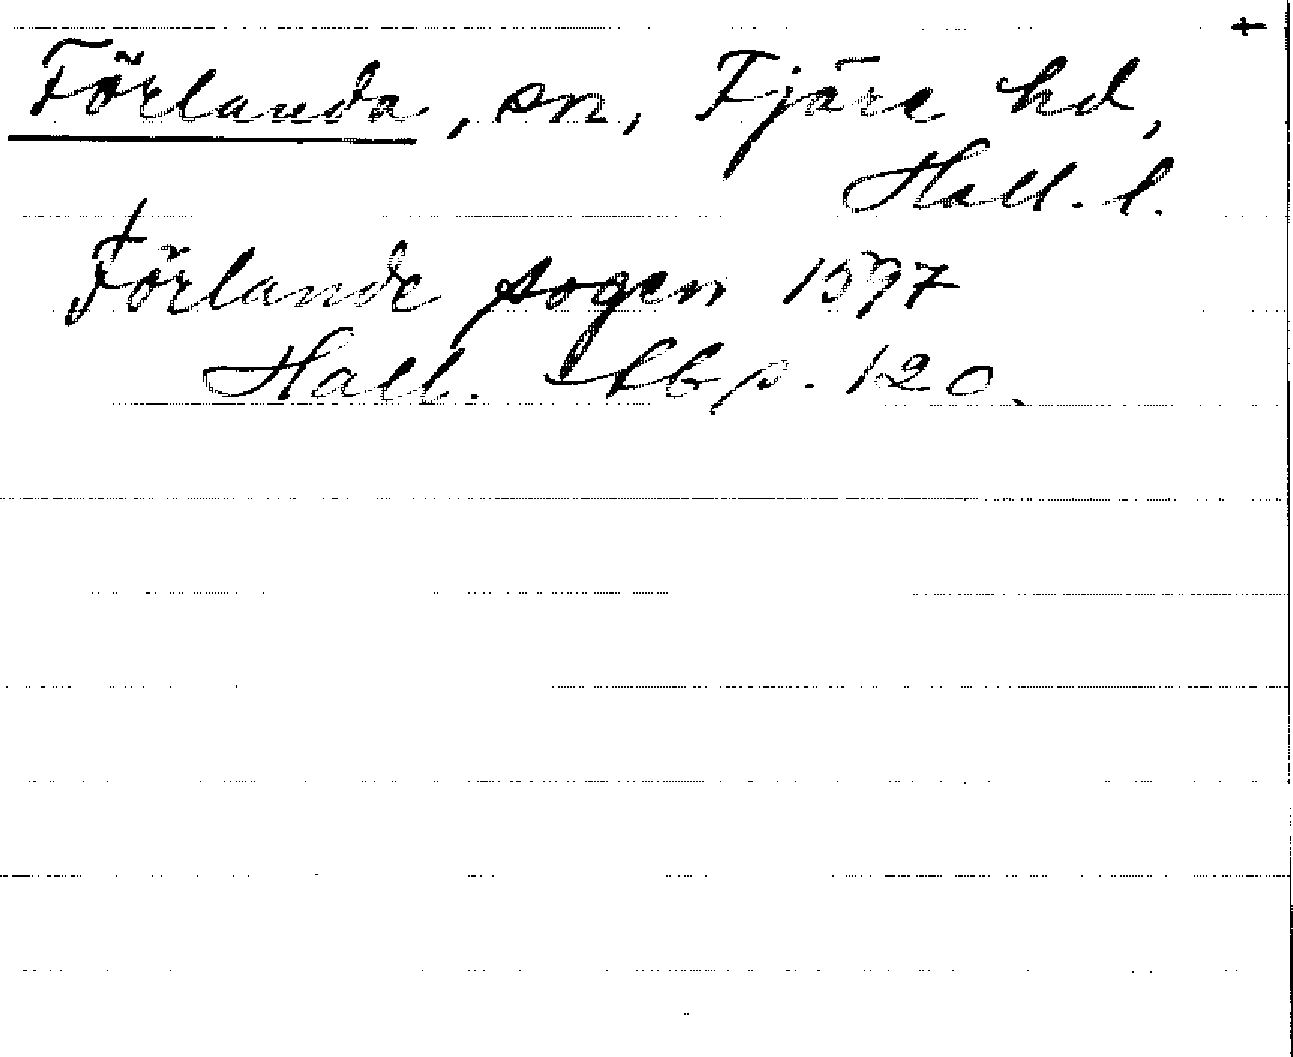 +
Förlanda, sn, Fjäre hd,
Hall. l.
Förlande sogen 1597
Hall. Lb p. 120.